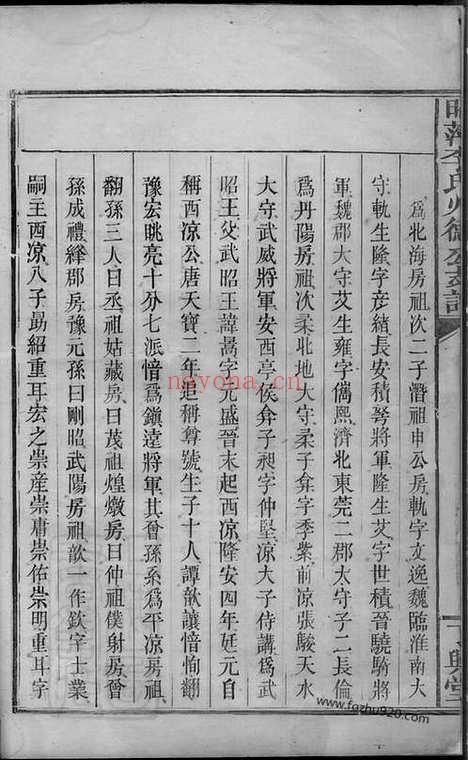 爲北海房祖次二子潛祖申公房軌字文逸魏臨淮南大
守軌生隆字彥緒長安積弩將軍隆生艾字世積晉驍騎將
軍魏郡大守艾生雍字儁熙濟北東莞二郡太守子二長倫
爲丹陽房祖次柔北地大守柔子弇字季紫前凉張駿天水
大守武威將軍安西亭侯弇子昶字仲堅凉大子侍講爲武
昭王父武昭王諱暠字元盛晉末起西凉隆安四年廷元自
稱西凉公唐天寶二年追稱尊號生子十人譚歆讓愔恂翻
豫宏眺亮十分七派愔爲鎭遠將軍其曾孫系爲平凉房祖
翻孫三人曰丞祖姑藏房曰茂祖煌燉房曰仲祖僕射房曾
孫成禮絳郡房豫元孫曰剛昭武陽房祖歆一作欽宰士業
嗣主西凉八子勗紹重耳宏之崇産崇庸崇佑崇明重耳字
氏
支譜
興堂
nayona.cn
www.fozhu920.com